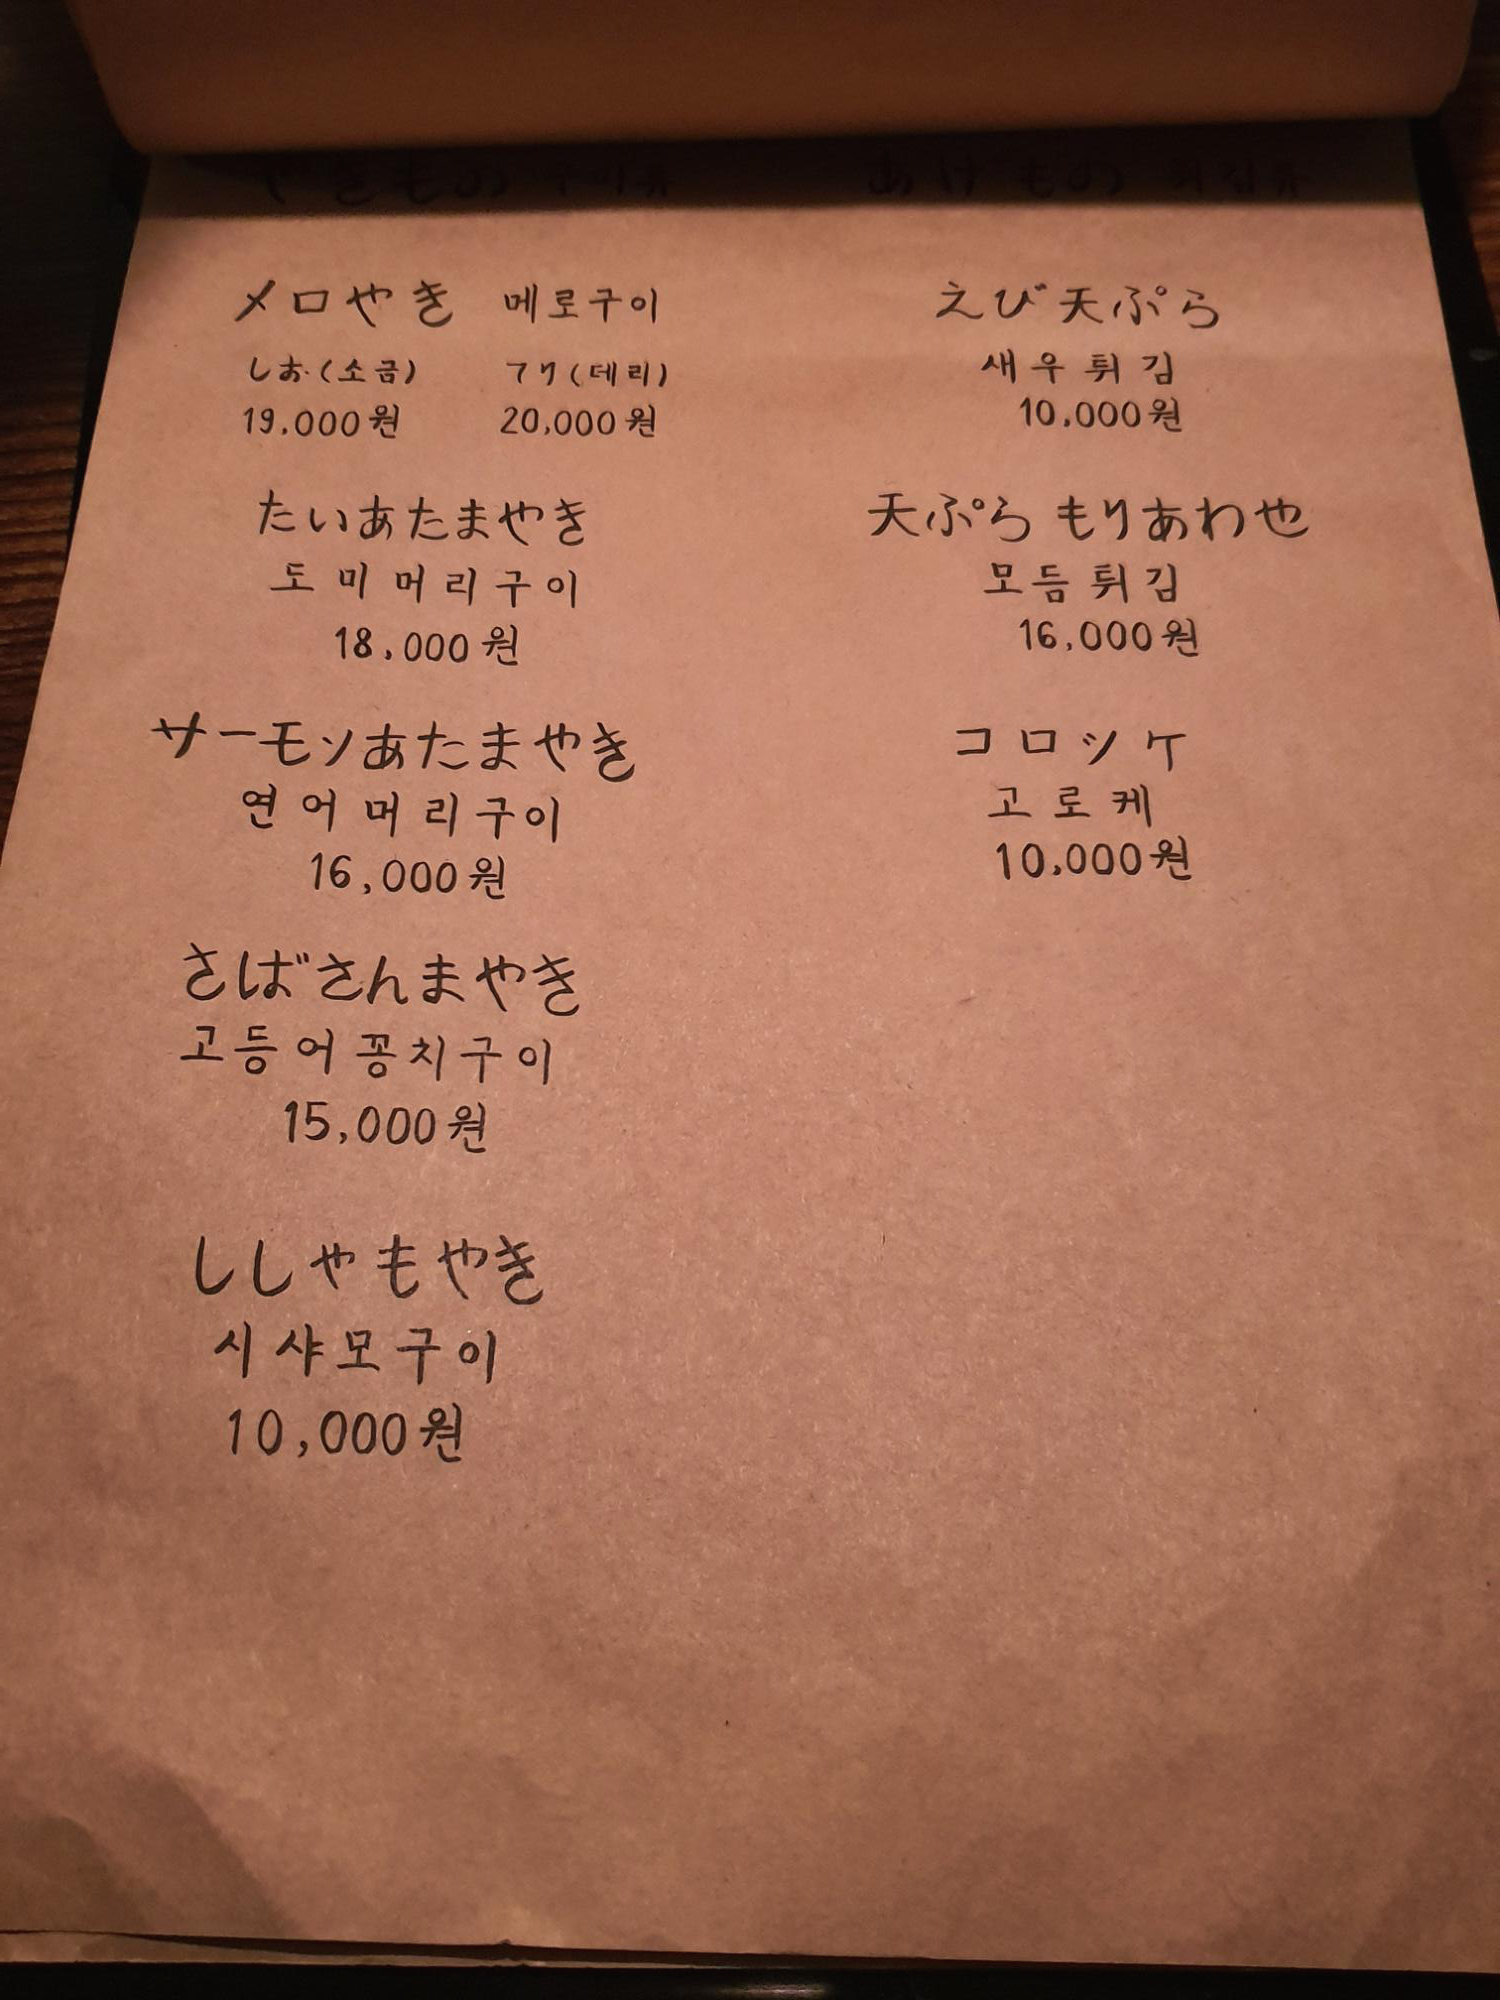 やきもの 구이류
メロやき 메로구이
しお(소금) テリ(데리)
19.000원 20,000원
たいあたまやき
도미머리구이
18,000원
サーモンあたまやき
연어머리구이
16,000원
さばさんまやき
고등어꽁치구이
15,000원
ししゃもやき
시샤모구이
10,000원
あげもの 튀김류
えび天ぷら
새우튀김
10,000원
天ぷら もりあわせ
모듬튀김
16,000원
コロッケ
고로케
10,000원